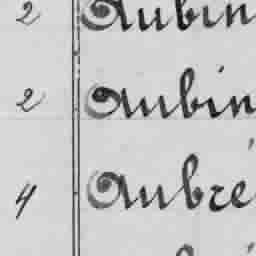 2 Aubin
2 Aubin
4 Aubré